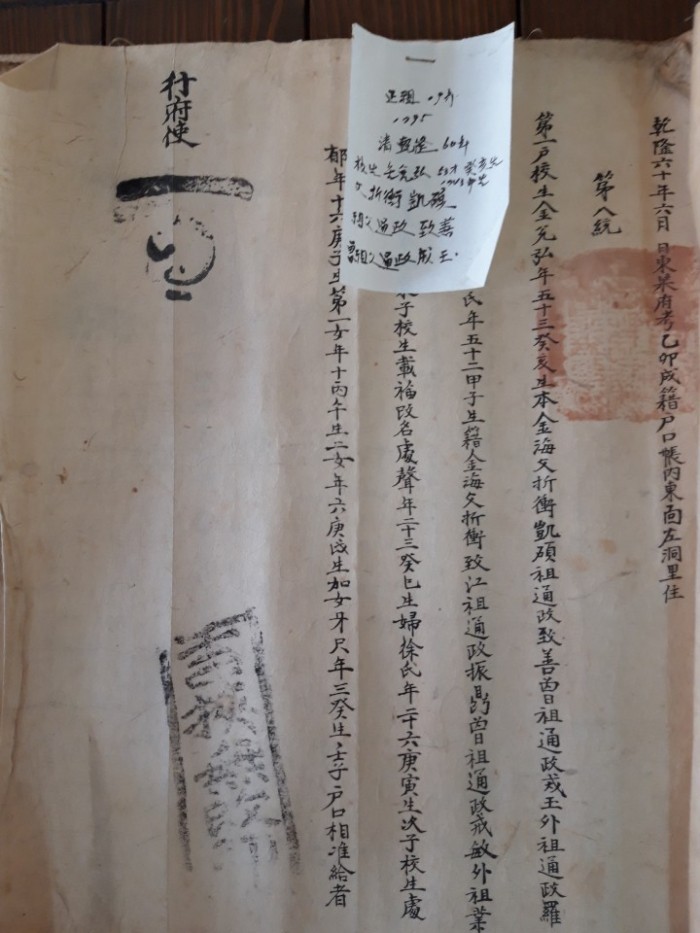 乾隆六十年六月 日東萊府考乙卯成籍戶口帳內東面左洞里住
第八統
第一戶校生金兌弘年五十三癸亥生本金海父折衝凱碩祖通政致善曾祖通政戎玉外祖通政羅
氏年五十二甲子生籍金海父折衝致江祖通政振鼎曾祖通政戒敏外祖業
子校生載福改名處聲年二十三癸巳生婦徐氏年二十六庚寅生次子校生處
郁年十六庚子生第一女年十丙午生二女年六庚戌生加女牙尺年三癸生壬子戶口相准給者
行府使
1795
乾隆 60年
父 折衝 凱碩
祖父 通政 致善
曾祖父 通政 戎玉